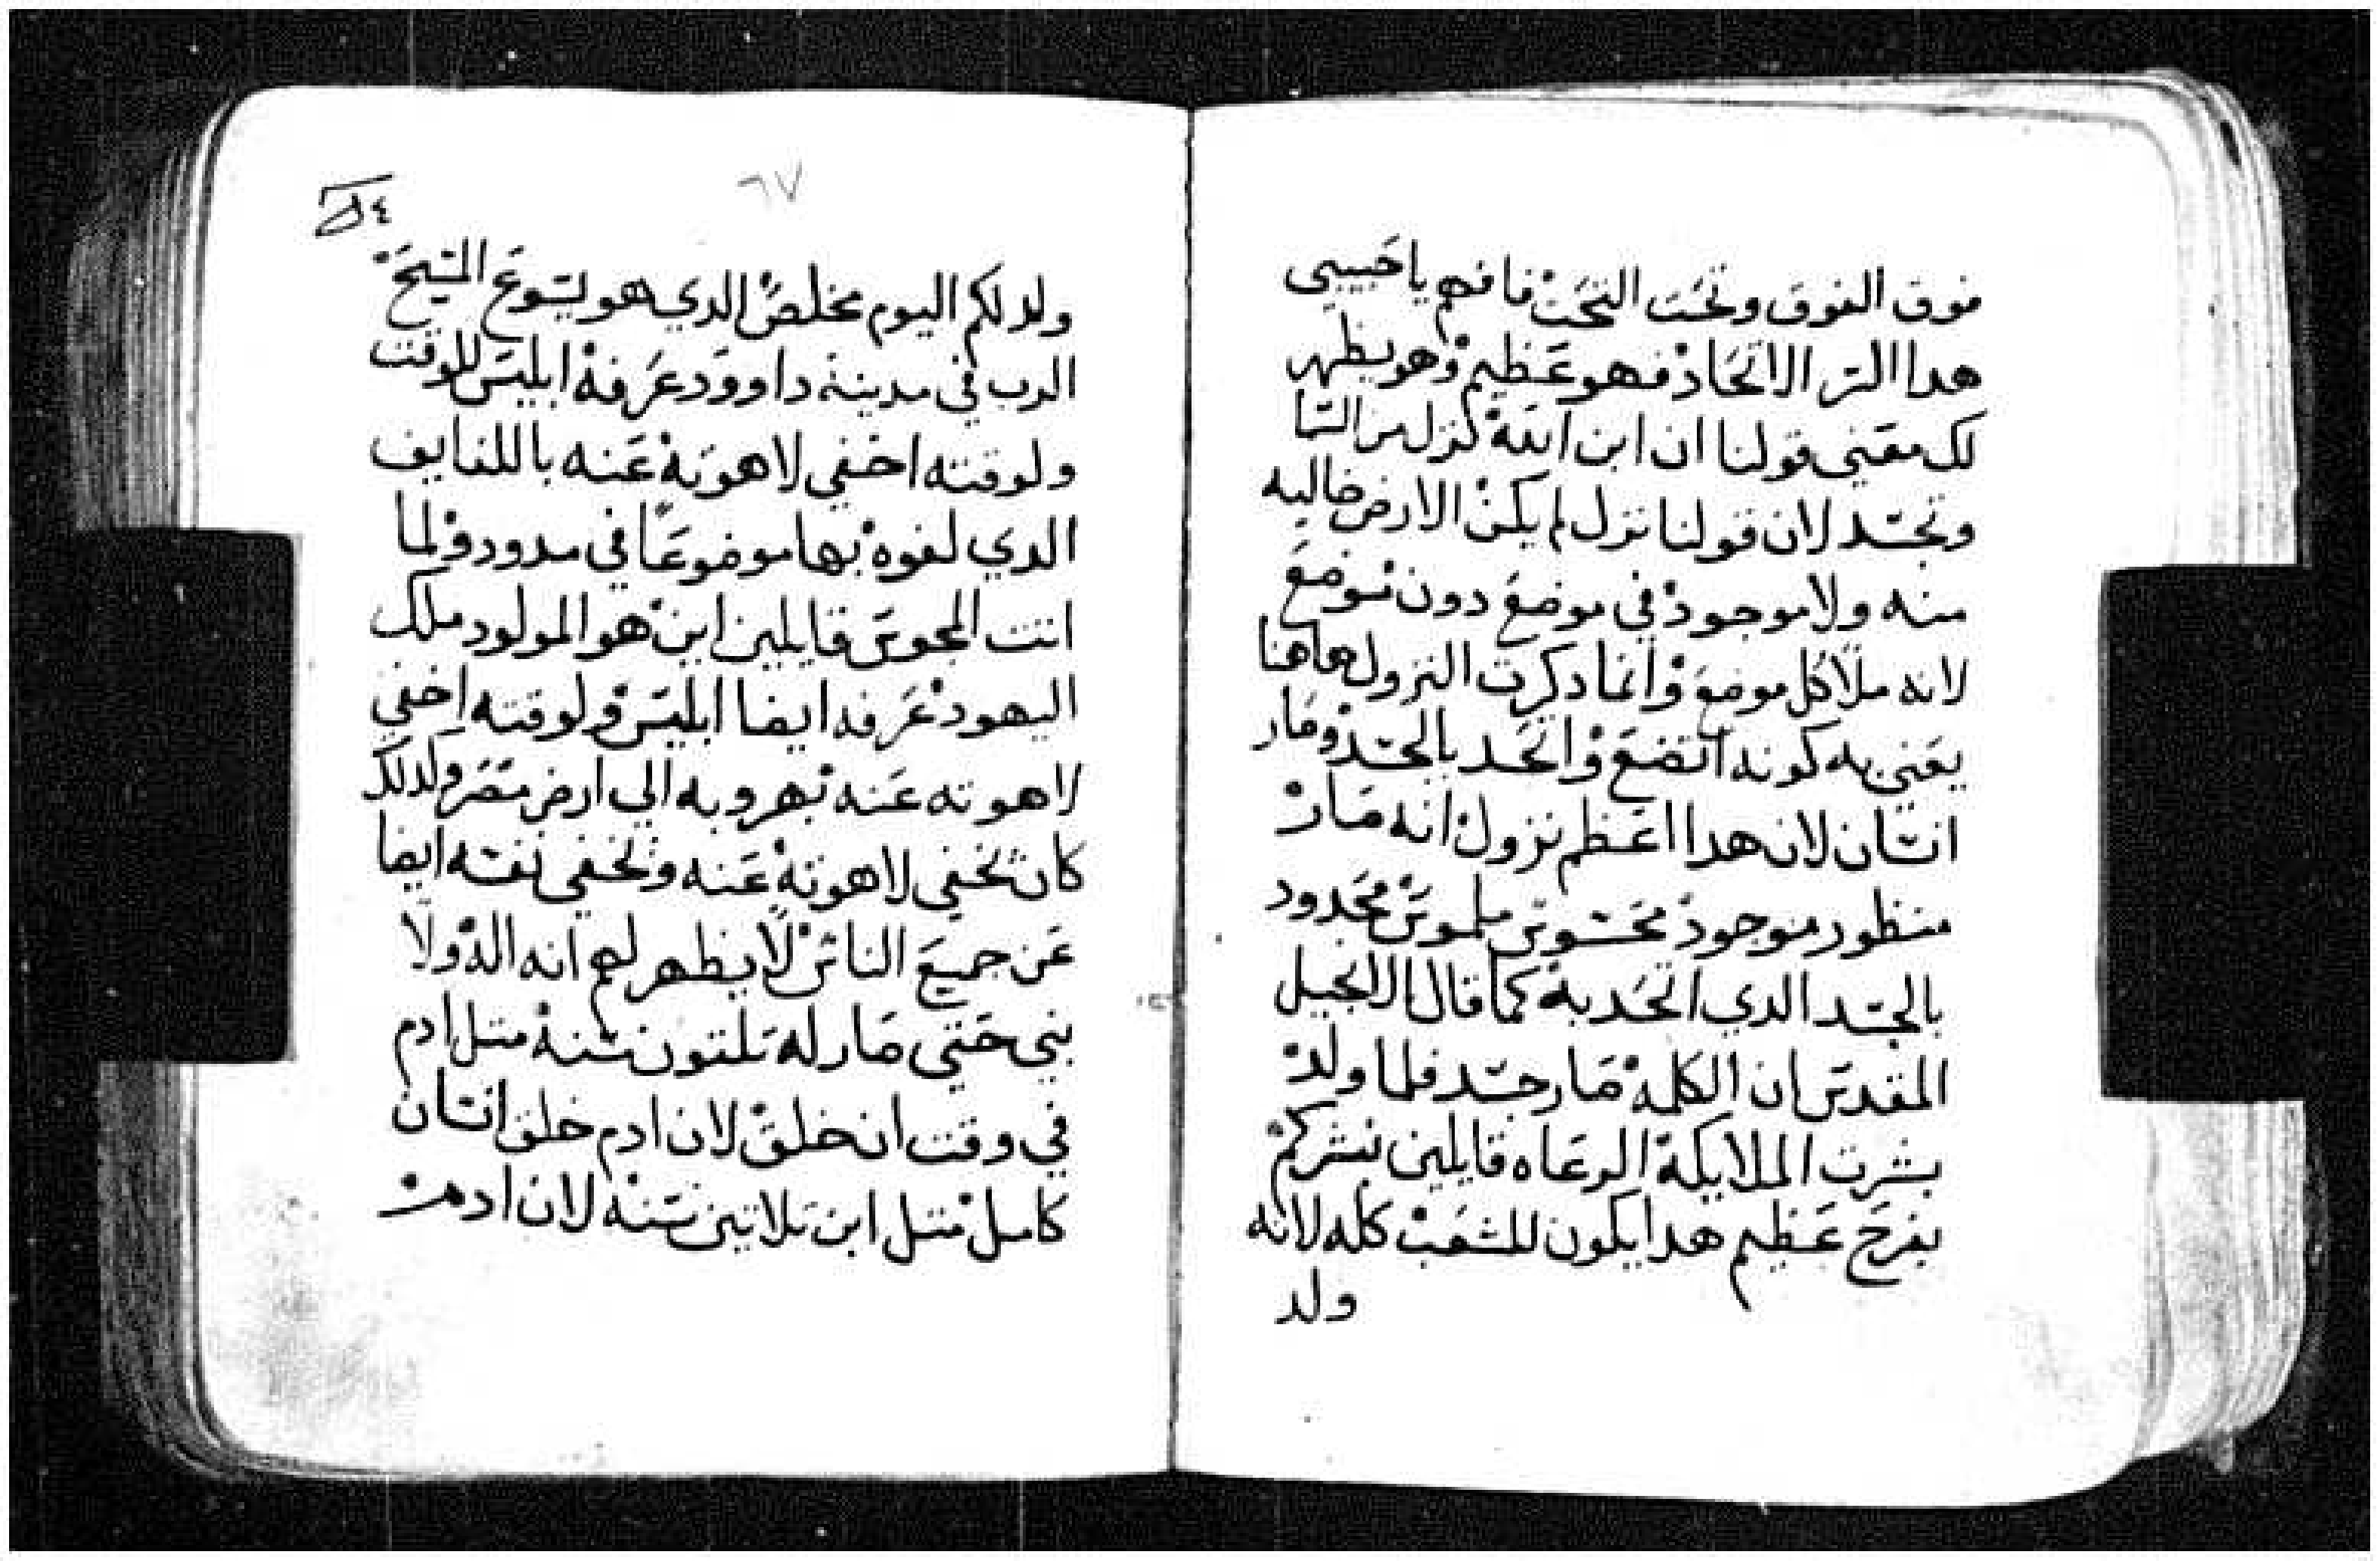 فوق الفوق وتحت التحت فافهم يا حبيبي
هدا السر الاتحاد فهو عظيم وهو يظهر
لك معني قولنا ان ابن الله نزل من السما
وتجسد لان قولنا نزل لم يكن الارض خاليه
منه ولا موجود في موضع دون موضع
لانه ملا كل موضع وانما دكرت النزول هاهنا
يعني به كونه اتضع واتحد بالجسد وصار
انسان لان هدا اعظم نزول انه صار
منظور موجود محسوس ملموس محدود
بالجسد الدي اتحد به كما قال الانجيل
المقدس ان الكلمة صار جسد فلما ولد
بشرت الملايكة الرعاه قايلين نبشركم
بفرح عظيم هدا يكون للشعب كله لانه
ولد
٦٧
ولد لكم اليوم مخلص الدي هو يسوع المسيح
الرب في مدينة داوود عرفه ابليس للوقت
ولوقته اخفي لاهوته عنه باللفايف
الدي لفوه بها موضوعا في مدود ولما
اتت المجوس قايلين اين هو المولود ملك
اليهود عرفه ايضا ابليس ولوقته اخفي
لاهوته عنه بهروبه الي ارض مصر ولدلك
كان يخفي لاهوته عنه ويخفي نفسه ايضا
عن جميع الناس لا يظهر لهم انه اله ولا
نبي حتي صار له تلتون سنة متل ادم
في وقت ان خلق لان ادم خلق انسان
كامل متل ابن تلاتين سنه لان ادم